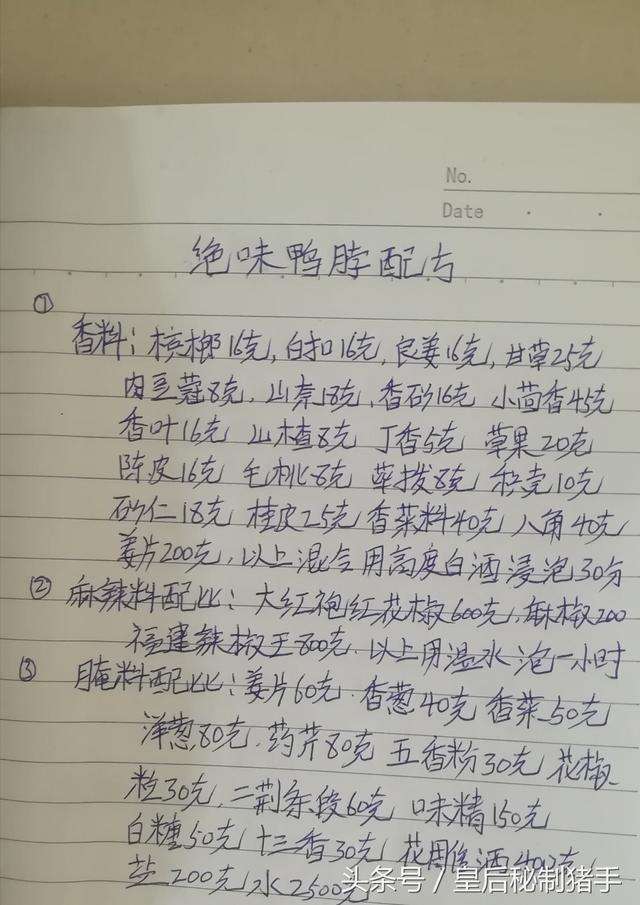 No.
Date
绝味鸭脖配方
①
香料:槟榔16克,白扣16克,良姜16克,甘草25克
肉豆蔻8克,山奈18克,香砂16克 小茴香45克
香叶16克 山楂8克 丁香5克 草果20克
陈皮16克 毛桃8克 荜拨8克 枳壳10克
砂仁18克 桂皮25克 香菜料40克 八角40克
姜片200克,以上混合用高度白酒浸泡30分
② 麻辣料配比:大红袍红花椒600克,麻椒200
福建辣椒王800克,以上用温水泡一小时
③ 腌料配比:姜片60克.香葱40克 香菜50克
洋葱80克.药芹80克 五香粉30克 花椒
粒30克,二荆条段60克 味精150克
白糖50克 十三香30克 花雕酒40克
盐200克 水2500克
头条号 / 皇后秘制猪手